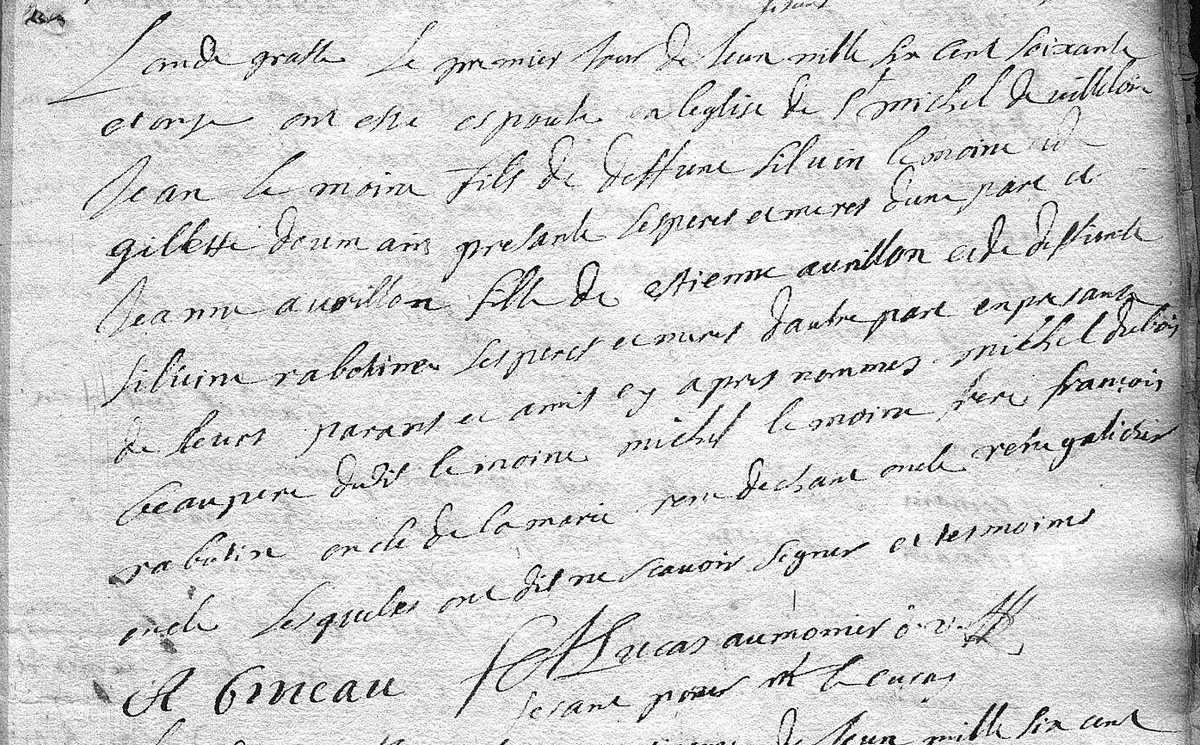 Lande grasse Le premier Jour de Jeun mille six cent soixante
et onze ont esté espousé en leglise de St michel de villeloin
Jean le moine fils de deffunt silvin le moine et de
gillette doumain presante ses peres et meres dune part et
Jeanne aurillon fille de estienne aurillon et de deffunte
silvine rabotine ses peres et meres dautre part en presante
de leurs parans et amis cy apres nommes michel dubois
beaupere dudit le moine michel le moine frere françois
rabotin oncle de la marie rene dechant oncle rene galicher
oncle lesquels ont dit ne scavoir segner et tesmoins
A bineau Lucas aumonier
fesant pour le curé
de Jeun mille six cent